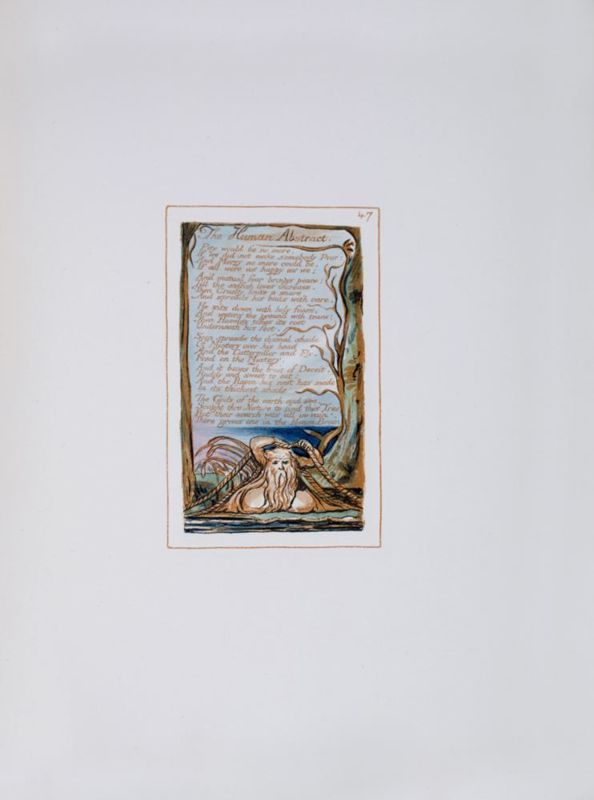 47
The Human Abstract.
Pity would be no more,
If we did not make somebody Poor:
And Mercy no more could be,
If all were as happy as we;
And mutual fear brings peace:
Till the selfish loves increase.
Then Cruelty knits a snare,
And spreads his baits with care.
He sits down with holy fears,
And waters the ground with tears:
Then Humility takes its root
Underneath his foot.
Soon spreads the dismal shade
Of Mystery over his head;
And the Catterpiller and Fly,
Feed on the Mystery.
And it bears the fruit of Deceit,
Ruddy and sweet to eat;
And the Raven his nest has made
In its thickest shade.
The Gods of the earth and sea
Sought thro' Nature to find this Tree
But their search was all in vain:
There grows one in the Human Brain